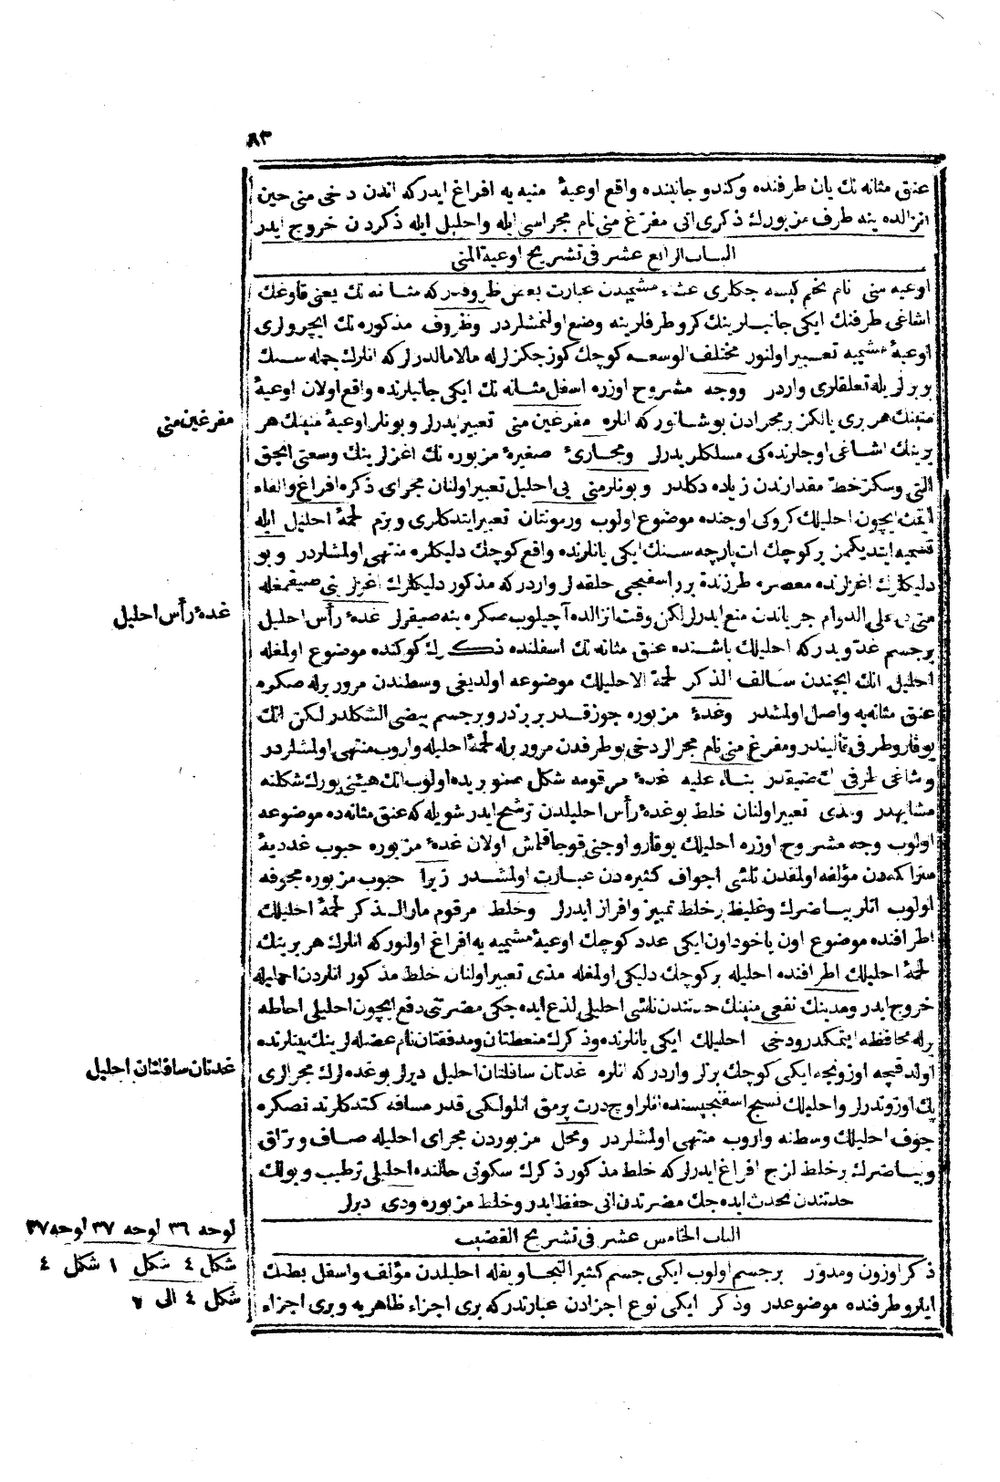 ٨٣
عنق مثانه نك يان طرفنده وكندو جانبنده واقع اوعيهٔ منيه يه افراغ ايدركه اندن دخى منى حين
انزالده ينه طرف مزبورك ذكرى انى مفرغ منى نام مجراسى ايله واحليل ايله ذكردن خروج ايدر
الباب الرابع عشر فى تشريح اوعية المنى
اوعيه منى نام تخم كيسه جكلرى غشاء مشيميدن عبارت بعض ظروفدركه مثانه نك يعنى قاوغك
اشاغى طرفنك ايكى جانبلرينك كرو طرفلرينه وضع اولنمشلردر وظروف مذكوره نك ايچروارى
اوعيهٔ مشيميه تعبير اولنور مختلف الوسعه كوچك كوزجكزلرله مالامالدرلركه انلرك جمله سنك
بربرلريله تعلقلرى واردر ووجه مشروح اوزره اسفل مثانه نك ايكى جانبلرنده واقع اولان اوعيهٔ
منينك هر برى يالكز بر مجرادن بوشانوركه انلره مفرغين منى تعبير ايدرلر وبونلر اوعيهٔ منينك هر
برينك اشاغى اوجلرنده كى مسلكلريدرلر ومجارئ صغيرهٔ مزبوره نك اغزلرينك وسعتى انجق
التى وسكز خط مقدارندن زياده دكلدر وبونلر منى يى احليل تعبير اولنان مجراى ذكره افراغ والقاء
ايتمك ايچون احليلك كروكى اوجنده موضوع اولوب ورمونتان تعبير ايتدكلرى وبزم لحمهٔ احليل ايله
تسميه ايتديكمز بر كوچك ات پارچه سنك ايكى يانلرنده واقع كوچك دليكلره منتهى اولمشلردر وبو
دليكلرك اغزلرنده معصره طرزنده برر اسفنجى حلقه لر واردركه مذكور دليكلرك اغزلرينى صيقمغله
منى يى على الدوام جرياندن منع ايدرلر لكن وقت انزالده آچيلوب صكره ينه صيقرلر غدهٔ رأس احليل
بر جسم غدويدركه احليلك باشنده عنق مثانه نك اسفلنده ذكرك كوكنده موضوع اولمغله
احليل انك ايچندن سالف الذكر لحمة الاحليلك موضوعه اولديغى وسطندن مرور برله صكره
عنق مثانه يه واصل اولمشدر وغدهٔ مزبوره جوز قدر بر بزدر وبر جسم بيضى الشكلدر لكن انك
يوقارو طرفى قالينلدر ومفرغ منى نام مجرالر دخى بو طرفدن مرور برله لحمهٔ احليله واروب منتهى اولمشلردر
واشاغى طرفى انك ضيقدر بناء عليه غدهٔ مرقومه شكل صنوبريده اولوب انك هيئتى يورك شكلنه
مشابهدر ومذى تعبير اولنان خلط بو غدهٔ رأس احليلدن ترشح ايدر شويله كه عنق مثانه ده موضوعه
اولوب وجه مشروح اوزره احليلك يوقارو اوجنى قوجاقلمش اولان غدهٔ مزبوره حبوب غدديهٔ
متراكمه دن مؤلفه اولمغدن ناشى اجواف كثيره دن عبارت اولمشدر زيرا حبوب مزبوره مجوفه
اولوب انلر بياضرك وغليظ بر خلط تمييز وافراز ايدرلر وخلط مرقوم مار الذكر لحمهٔ احليلك
اطرافنده موضوع اون ياخود اون ايكى عدد كوچك اوعيهٔ مشيميه يه افراغ اولنوركه انلرك هر برينك
لحمهٔ احليلك اطرافنده احليله بر كوچك دليكى اولمغله مذى تعبير اولنان خلط مذكور انلردن احليله
خروج ايدر ومذينك نفعى منينك حدتندن ناشى احليلى لذع ايده جكى مضرتى دفع ايچون احليلى احاطه
برله محافظه ايتمكدر ودخى احليلك ايكى يانلرنده وذكرك منعظتان ومدفقتان نام عضله لرينك بينلرنده
اولدقچه اوزونجه ايكى كوچك بزلر واردركه انلره غدتان سافلتان احليل ديرلر بو غده لرك مجرالرى
پك اوزوندرلر واحليلك نسيج اسفنجيسنده انلر اوچ درت پرمق انلولكى قدر مسافه كتدكلرندنصكره
جوف احليلك وسطنه واروب منتهى اولمشلردر ومحل مزبوردن مجراى احليله صاف وبراق
وبياضرك بر خلط لزج افراغ ايدرلركه خلط مذكور ذكرك سكونى حالنده احليلى ترطيب وبولك
حدتندن تحدث ايده جك مضرتدن انى حفظ ايدر وخلط مزبوره ودى ديرلر
الباب الخامس عشر فى تشريح القضيب
ذكر اوزون ومدور بر جسم اولوب ايكى جسم كثير التجاويفله احليلدن مؤلف واسفل بطنك
ايلرو طرفنده موضوعدر وذكر ايكى نوع اجزادن عبارتدركه برى اجزاء ظاهريه وبرى اجزاء
مفرغين منى
غدهٔ رأس احليل
غدتان سافلتان احليل
لوحه ٣٦ لوحه ٣٧ لوحه ٣٧
شكل ٤ شكل ١ شكل ٤
شكل ٤ الى ٧